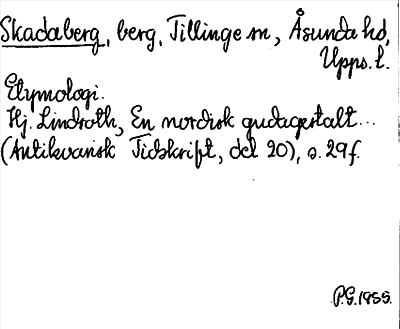 Skadaberg, berg, Tillinge sn, Åsunda hd,
Upps. l.
Etymologi.
Hj. Lindroth, En nordisk gudagestalt...
(Antikvarisk Tidskrift, del 20), s. 29 f.
P.G. 1955.